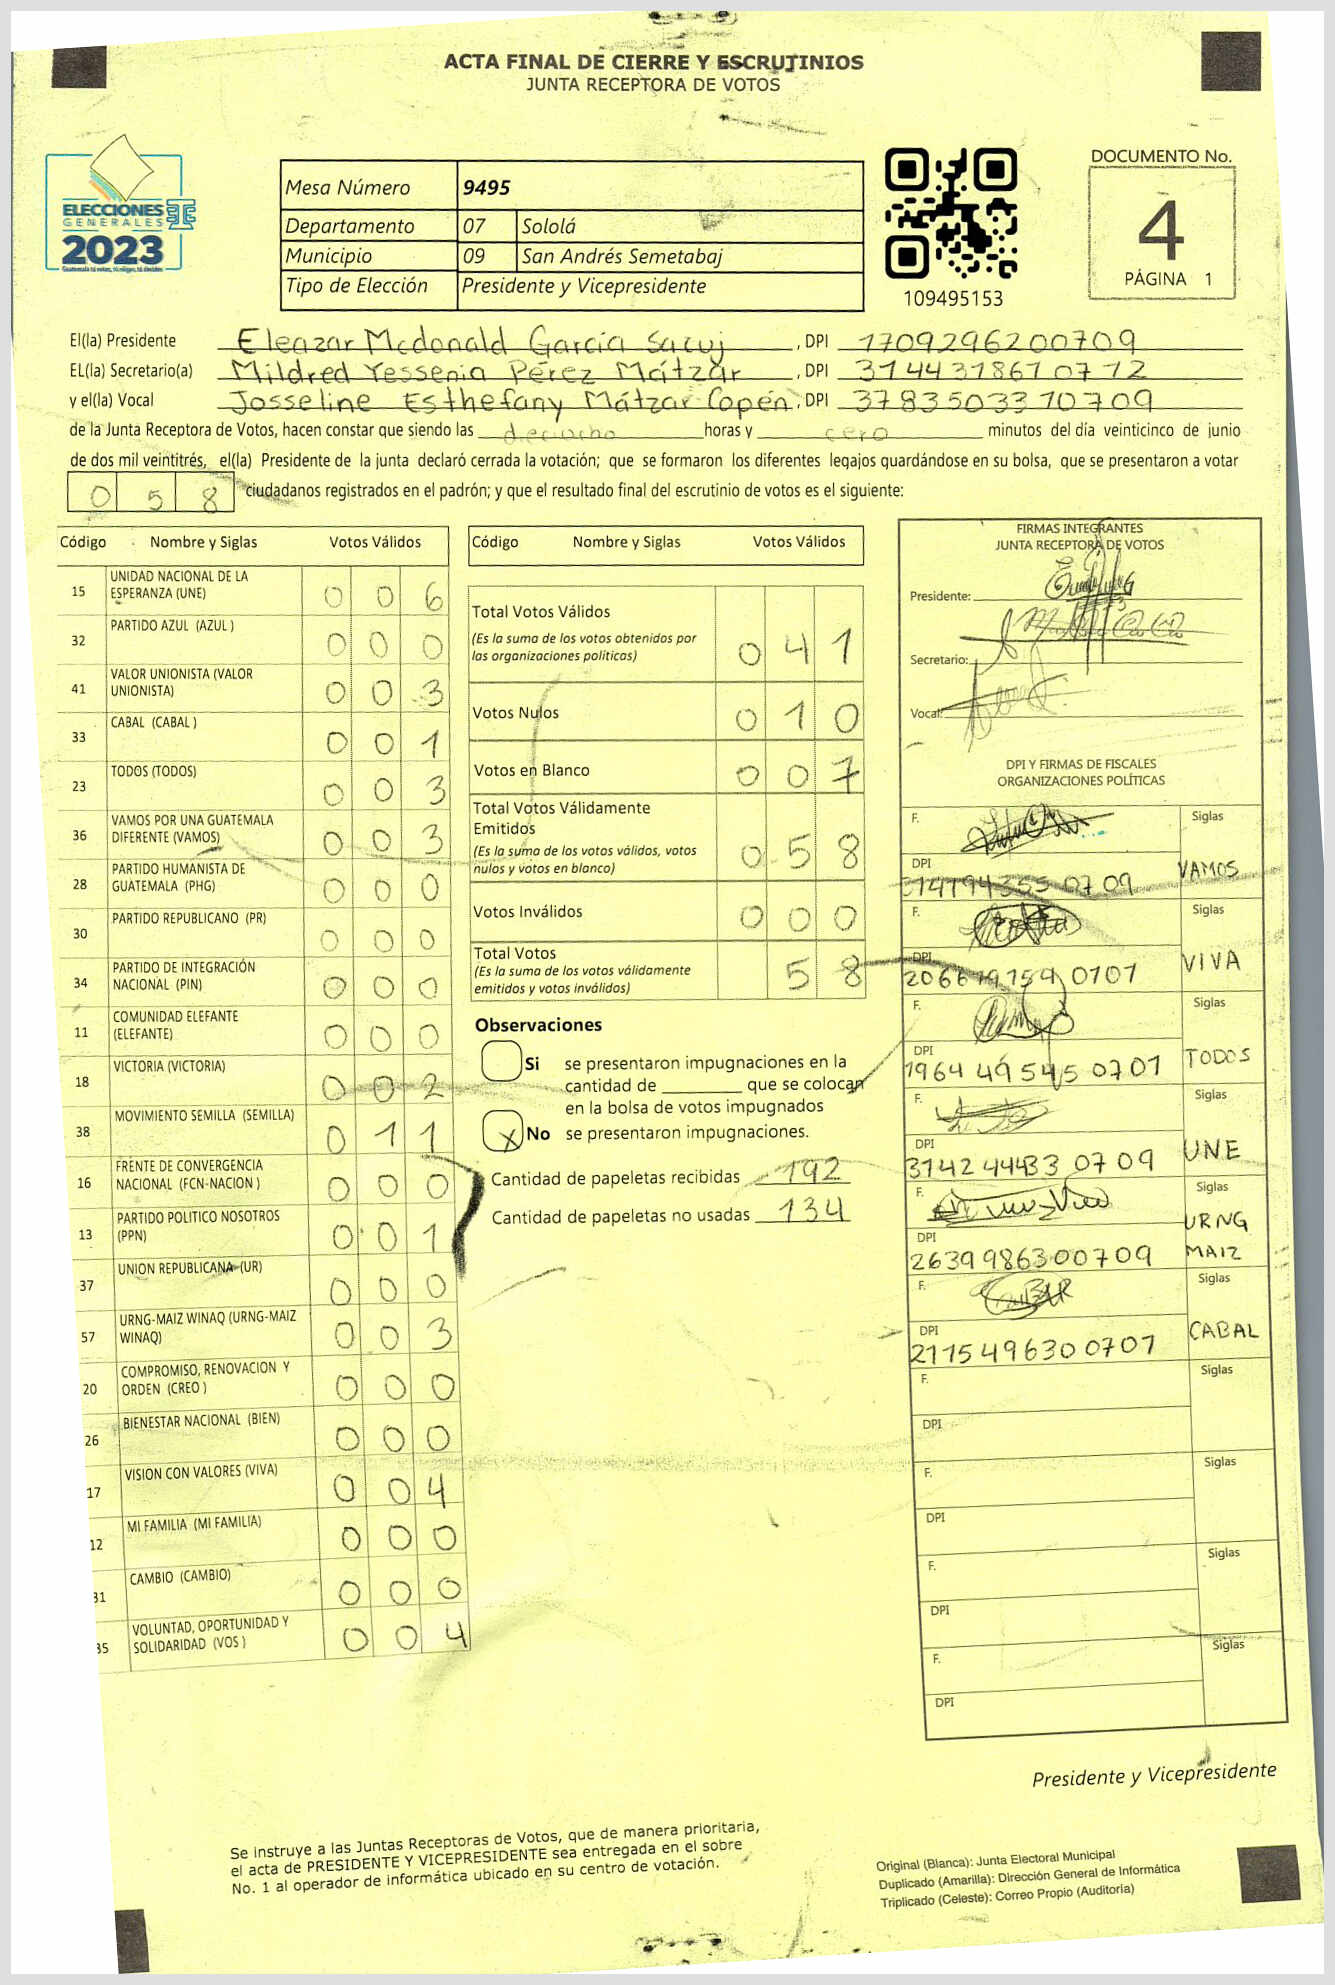 ACTA FINAL DE CIERRE Y ESCRUTINIOS
JUNTA RECEPTORA DE VOTOS
ELECCIONES
GENERALES
2023
Guatemala tú votas, tú eliges, tú decides
Mesa Número 9495
Departamento 07 Sololá
Municipio 09 San Andrés Semetabaj
Tipo de Elección Presidente y Vicepresidente
109495153
DOCUMENTO No.
4
PÁGINA 1
El(la) Presidente Eleazar Mcdonald García Sacuj, DPI 1709296200709
EL(la) Secretario(a) Mildred Yessenia Pérez Mátzar, DPI 3144318610712
y el(la) Vocal Josseline Esthefany Mátzar Copén, DPI 3783503310709
de la Junta Receptora de Votos, hacen constar que siendo las dieciocho horas y cero minutos del día veinticinco de junio
de dos mil veintitrés, el(la) Presidente de la junta declaró cerrada la votación; que se formaron los diferentes legajos guardándose en su bolsa, que se presentaron a votar
0 5 8 ciudadanos registrados en el padrón; y que el resultado final del escrutinio de votos es el siguiente:
Código Nombre y Siglas Votos Válidos
15 UNIDAD NACIONAL DE LA ESPERANZA (UNE) 0 0 6
32 PARTIDO AZUL (AZUL ) 0 0 0
41 VALOR UNIONISTA (VALOR UNIONISTA) 0 0 3
33 CABAL (CABAL ) 0 0 1
23 TODOS (TODOS) 0 0 3
36 VAMOS POR UNA GUATEMALA DIFERENTE (VAMOS) 0 0 3
28 PARTIDO HUMANISTA DE GUATEMALA (PHG) 0 0 0
30 PARTIDO REPUBLICANO (PR) 0 0 0
34 PARTIDO DE INTEGRACIÓN NACIONAL (PIN) 0 0 0
11 COMUNIDAD ELEFANTE (ELEFANTE) 0 0 0
18 VICTORIA (VICTORIA) 0 0 2
38 MOVIMIENTO SEMILLA (SEMILLA) 0 1 1
16 FRENTE DE CONVERGENCIA NACIONAL (FCN-NACION ) 0 0 0
13 PARTIDO POLITICO NOSOTROS (PPN) 0 0 1
37 UNION REPUBLICANA (UR) 0 0 0
57 URNG-MAIZ WINAQ (URNG-MAIZ WINAQ) 0 0 3
20 COMPROMISO, RENOVACION Y ORDEN (CREO ) 0 0 0
26 BIENESTAR NACIONAL (BIEN) 0 0 0
17 VISION CON VALORES (VIVA) 0 0 4
12 MI FAMILIA (MI FAMILIA) 0 0 0
31 CAMBIO (CAMBIO) 0 0 0
35 VOLUNTAD, OPORTUNIDAD Y SOLIDARIDAD (VOS ) 0 0 4
Código Nombre y Siglas Votos Válidos
Total Votos Válidos
(Es la suma de los votos obtenidos por
las organizaciones políticas) 0 4 1
Votos Nulos 0 1 0
Votos en Blanco 0 0 7
Total Votos Válidamente
Emitidos
(Es la suma de los votos válidos, votos
nulos y votos en blanco) 0 5 8
Votos Inválidos 0 0 0
Total Votos
(Es la suma de los votos válidamente
emitidos y votos inválidos) 5 8
Observaciones
Si se presentaron impugnaciones en la
cantidad de ________ que se colocan
en la bolsa de votos impugnados
X No se presentaron impugnaciones.
Cantidad de papeletas recibidas 192
Cantidad de papeletas no usadas 134
FIRMAS INTEGRANTES
JUNTA RECEPTORA DE VOTOS
Presidente:
Secretario:
Vocal:
DPI Y FIRMAS DE FISCALES
ORGANIZACIONES POLÍTICAS
F. Siglas
DPI VAMOS
F. Siglas
DPI VIVA
F. Siglas
DPI TODOS
1964 49545 0701
F. Siglas
DPI UNE
31424 4433 0709
F. Siglas
DPI URNG MAIZ
2639986300709
F. Siglas
DPI CABAL
2115496300701
F. Siglas
DPI
F. Siglas
DPI
F. Siglas
DPI
F. Siglas
DPI
Presidente y Vicepresidente
Se instruye a las Juntas Receptoras de Votos, que de manera prioritaria,
el acta de PRESIDENTE Y VICEPRESIDENTE sea entregada en el sobre
No. 1 al operador de informática ubicado en su centro de votación.
Original (Blanca): Junta Electoral Municipal
Duplicado (Amarilla): Dirección General de Informática
Triplicado (Celeste): Correo Propio (Auditoría)